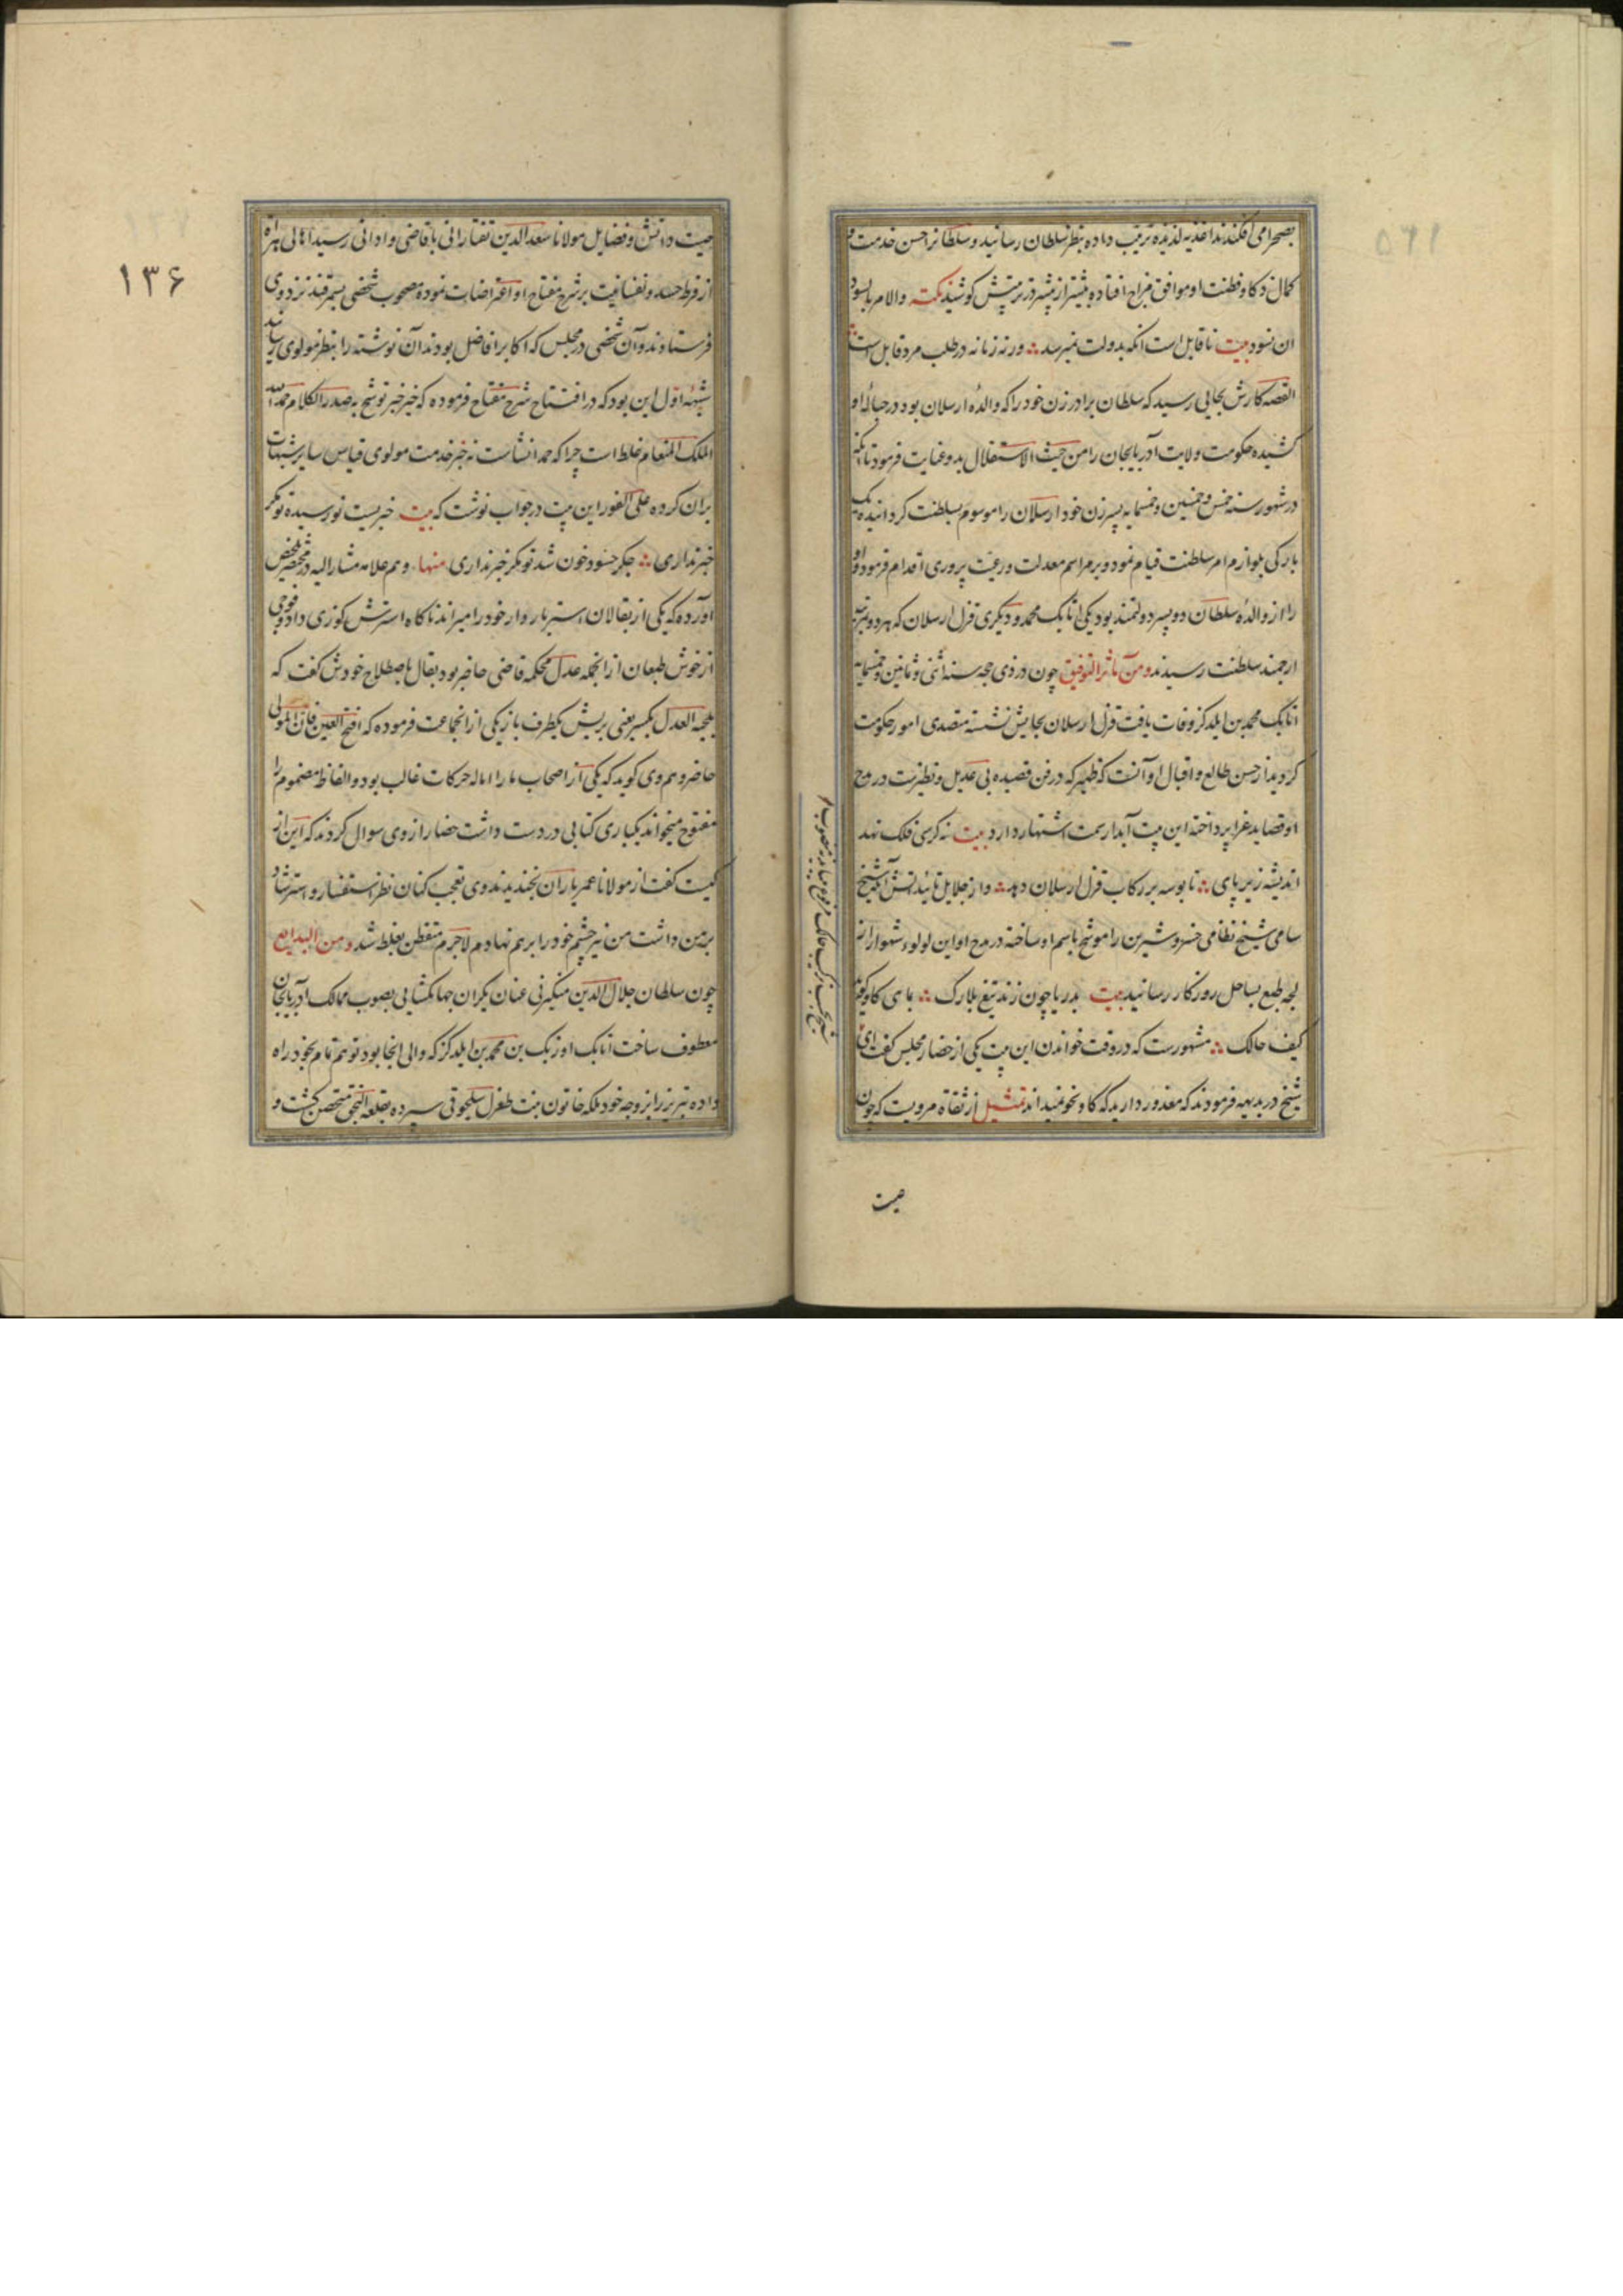 بصحرا می افکندند اغذیه لذیذه ترتیب داده بنظر سلطان رسانید و سلطانرا حسن خدمت و
کمال ذکا و فطنت او موافق مزاج افتاده بیشتر از پیشتر در تربیتش کوشید نکته والا مر
ان نسود بیت ناقابل است انکه بدولت نمیرسد ورنه زمانه در طلب مرد قابل است
القصه کارش بجایی رسید که سلطان برادر زن خود را که والدهٔ ارسلان بود در حبالهٔ او
کشیده حکومت ولایت آذربایجان را من حیث الاستقلال بدو عنایت فرمود تا انکه
در شهور سنه خمس و خمسین و خمسمایه پسر زن خود ارسلان را موسوم بسلطنت کردانیده
بلوازم امر سلطنت قیام نمود و بر مراسم معدلت و رعیت پروری اقدام فرمود و او
را از والدهٔ سلطان دو پسر دولتمند بود یکی اتابک محمد و دیکری قزل ارسلان که هر دو بمرتبه
ارجمند سلطنت رسیدند و من مآثر التوفیق چون در ذی حجه سنه اثنی و ثمانین و خمسمایه
اتابک محمد بن ایلدکز وفات یافت قزل ارسلان بجایش نشسته متصدی امور حکومت
کردید از حسن طالع و اقبال او آنست که ظهیر که در فن قصیده بی عدیل و نظیرست در مدح
او قصاید غرا پرداخته این بیت آبدار سمت اشتهار دارد بیت نه کرسی فلک نهد
اندیشه زیر پای تا بوسه بر رکاب قزل ارسلان دهد و از جلایل تائیداتش آنکه شیخ
سامی شیخ نظامی خسرو شیرین را موشح باسم او ساخته در مدح او این لولوء شهوار را از
لجه طبع بساحل روزکار رسانید بیت بدریا چون زند تیغ بلارک بماهی کاو کوید
کیف حالک مشهورست که در وقت خواندن این بیت یکی از حضار مجلس کفت ای
شیخ در بدیهه فرمودند که معذور دارید که کاو نحو نمیداند تمثیل از ثقاة مرویست که چون
صیت
صیت دانش و فضایل مولانا سعد الدین تفتازانی باقاصی و ادانی رسید اهالی هراه
از فرط حسد و نفسانیت بر شرح مفتاح او اعتراضات نموده مصحوب شخصی بسمرقند نزد وی
فرستادند و آن شخص در مجلس که اکابر افاضل بودند آن نوشته را بنظر مولوی رسانید
شبههٔ اول این بود که در افتتاح شرح مفتاح فرموده که خیر خبر توشح به صدر الکلام حمد الله
الملک المنعام غلط است چرا که حمد انشاست نه خبر خدمت مولوی قیاس سایر شبهات
بران کرده علی الفور این بیت در جواب نوشت که بیت خبریست نو رسیده تو مکر
خبر نداری جکر حسود خون شد تو مکر خبر نداری منها و هم علامه مشار الیه در مختصر تلخیص
اورده که یکی از بقالان استر بار دار خود را میراند ناکاه استرش کوزی داد و جمعی
از خوش طبعان از انجمله عدل محکمه قاضی حاضر بود بقال باصطلاح خودش کفت که
بلحیه العدل بکسر یعنی بریش یکطرف بار یکی از انجماعت فرموده که افتح العین فان المولی
حاضر و هم وی کوید که یکی از اصحاب ما را اماله حرکات غالب بود و الفاظ مضموم را
مفتوح میخواند یکباری کتابی در دست داشت حضار از وی سوال کردند که این از
کیست کفت از مولانا عمر یاران بخندیدند وی تعجب کنان نظر استفسار و استرشاد
بر من داشت من نیز چشم خود را بر هم نهادم لاجرم متفطن بغلط شد و من البدایع
چون سلطان جلال الدین منکبرنی عنان یکران جهانکشایی بصوب ممالک آذربایجان
معطوف ساخت اتابک اوزبک بن محمد بن ایلدکز که والی انجا بود توهم تمام بخود راه
داده تبریز را بزوجه خود ملکه خاتون بنت طغرل سلجوقی سپرده بقلعه النجق متحصن کشت و
۱۳۶